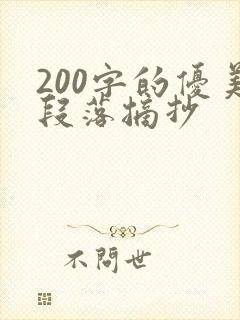 200字的優美
段落摘抄
不問世